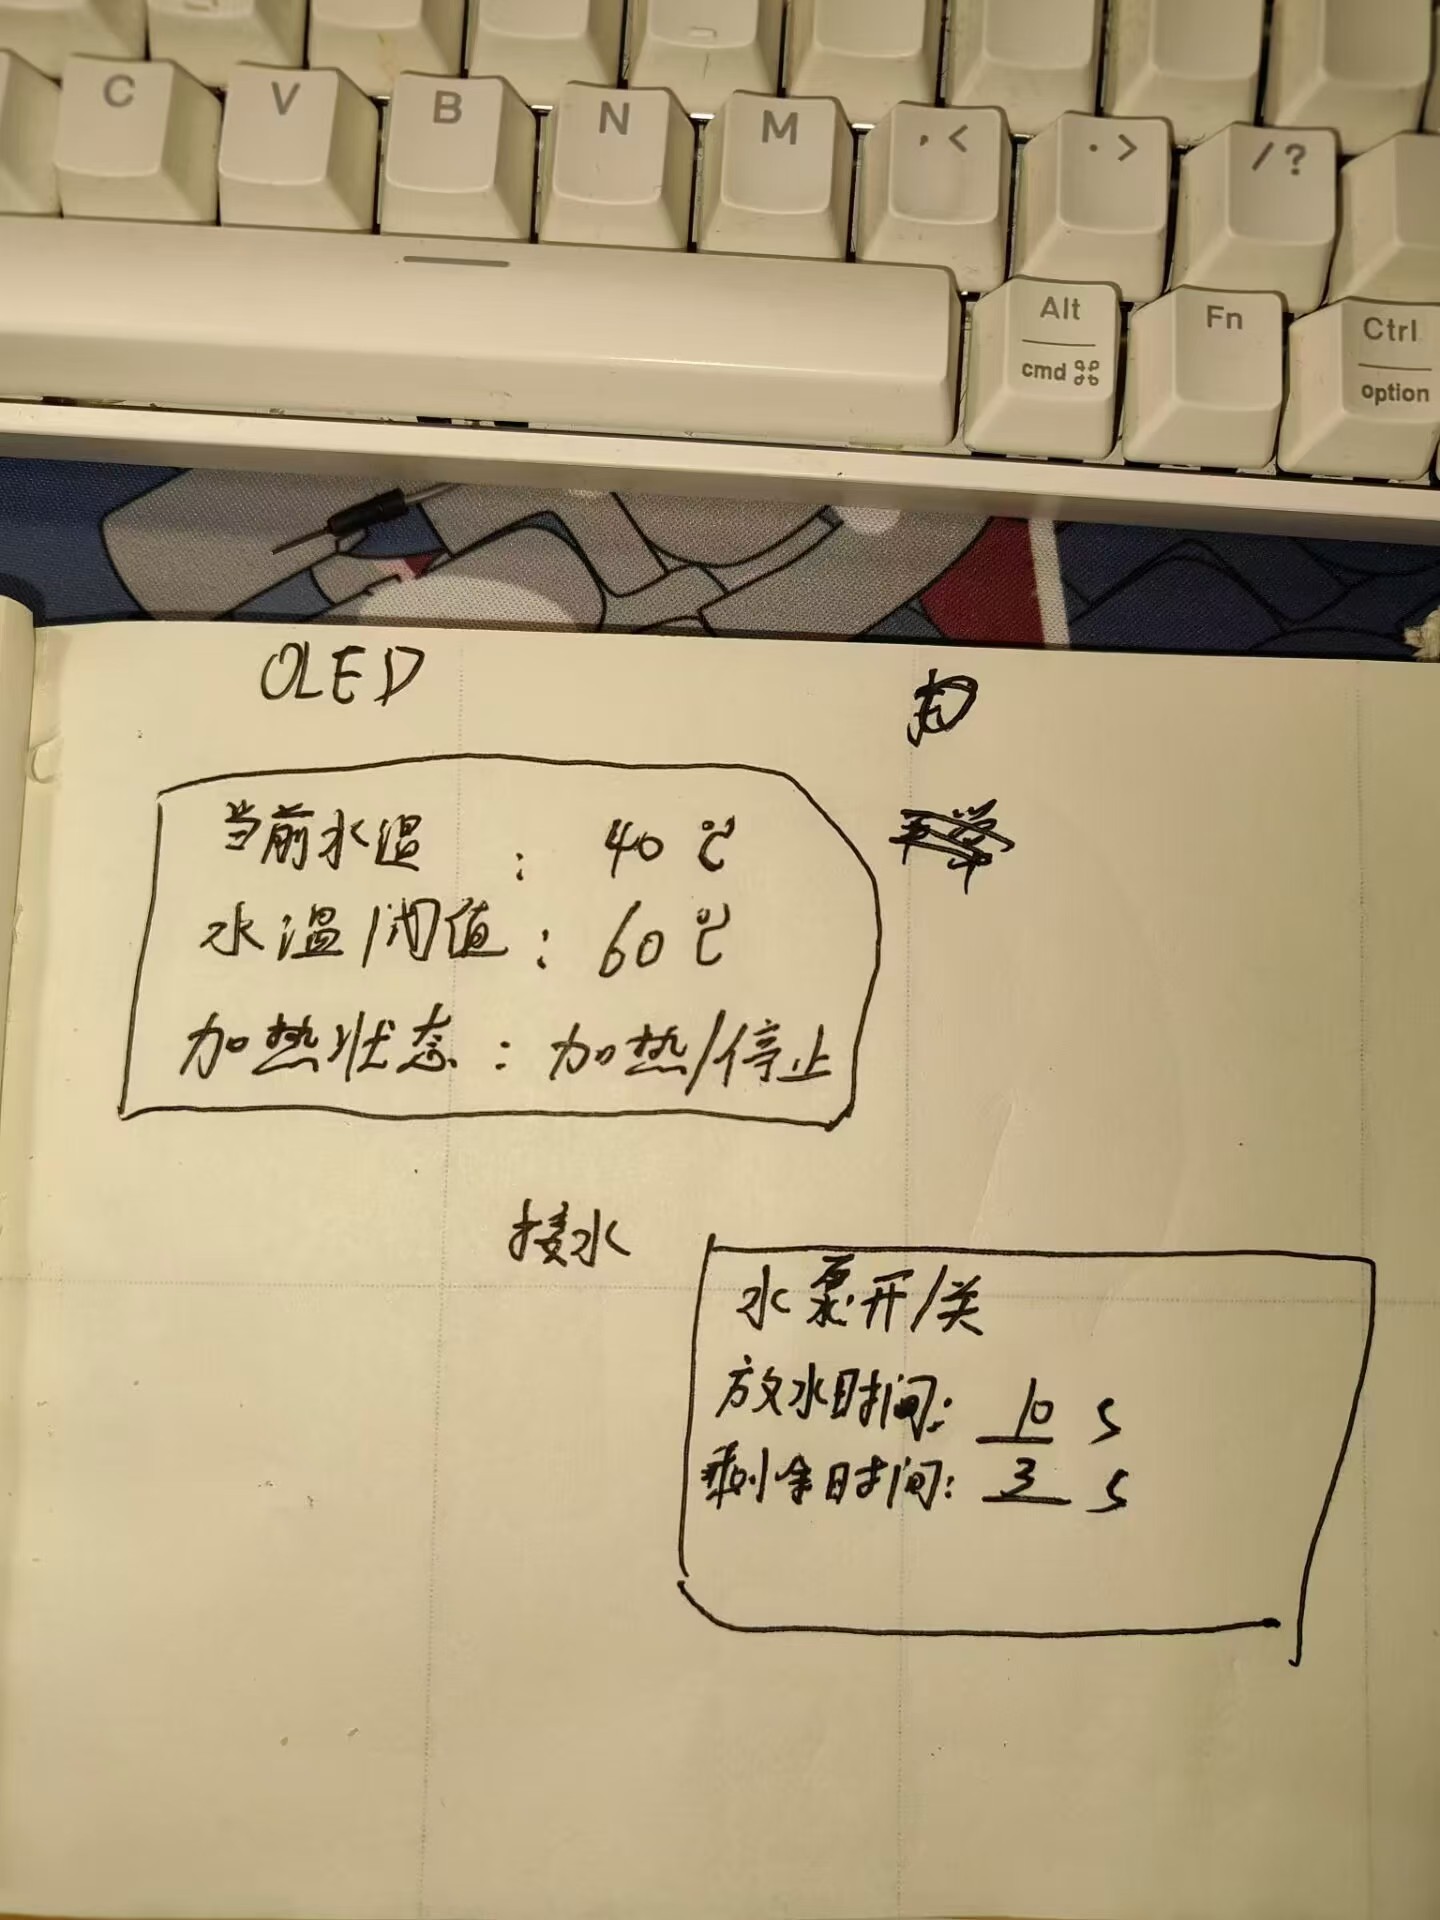 C V B N M , < . > / ?
Alt Fn Ctrl
cmd ⌘ option
OLED
当前水温 : 40 ℃
水温阈值 : 60 ℃
加热状态 : 加热/停止
接水
水泵开/关
放水时间: 10 s
剩余时间: 3 s